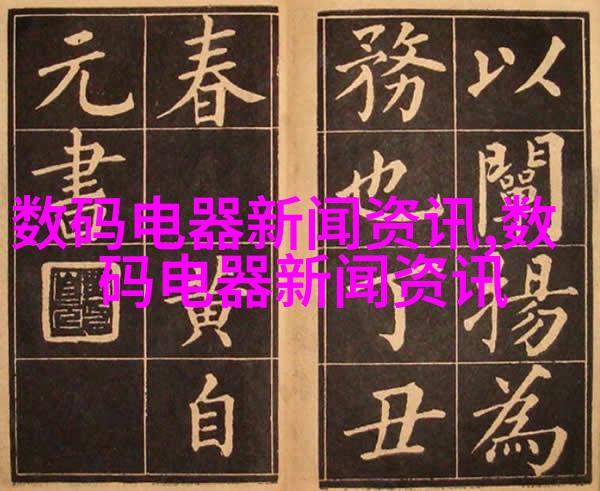 以闡揚為
務也丁丑
春
黃自
元書
数码电器新闻资讯,数
码电器新闻资讯